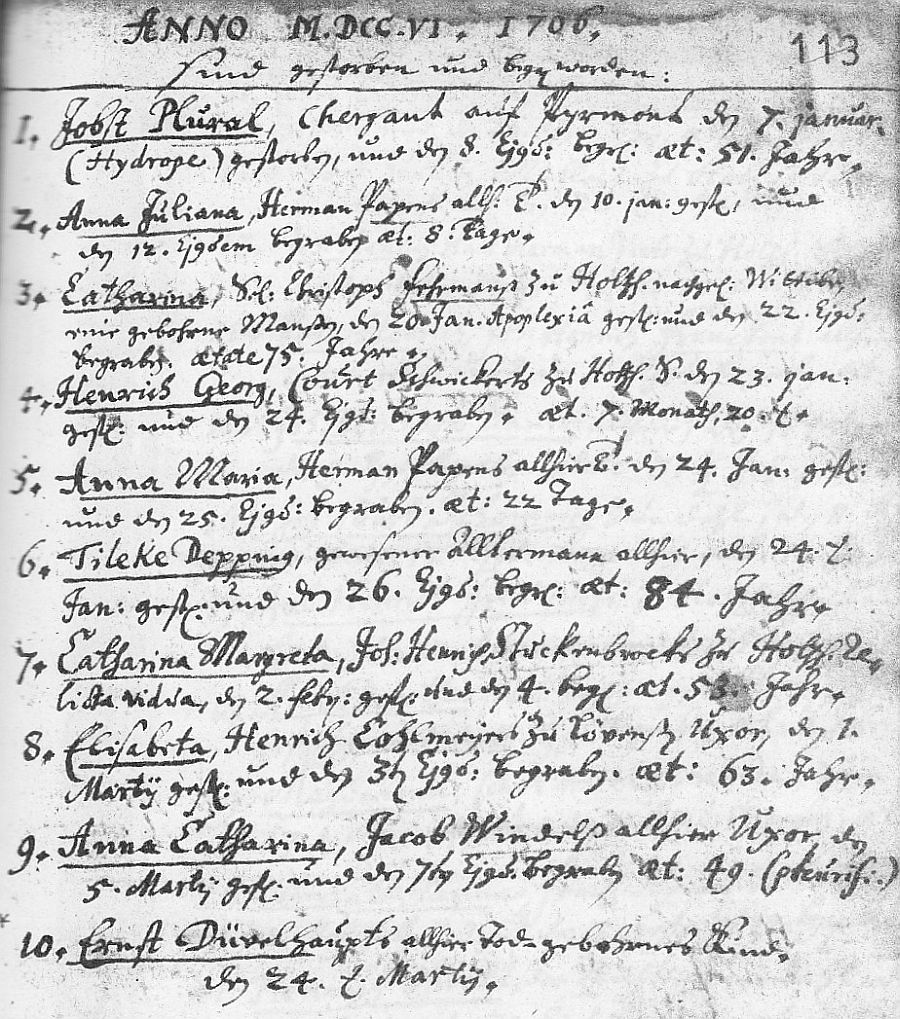 ANNO M.DCC.VI. 1706.
113
sind gestorben und begr: worden:
1. Jobst Plural, Chergant auf Pyrmont den 7. januar.
(Hydrope) gestorben, und den 8. Ejus: begr: æt: 51. Jahr.
2. Anna Juliana, Herman Papens allh: den 10. jan: gest:, und
den 12. Ejusem begraben æt: 8. Tage.
3. Catharina, Sel: Christoph Fehrmans zu Holtzh. nachgel: Wittiben
eine gebohrne Manßen, den 20. Jan. Apoplexia gest: und den 22. Ejus:
begraben. ætate 75. Jahre.
4. Henrich Georg, Court Schwickerts zu Holtzh. S. den 23. jan:
gest: und den 24. Ejus: begraben. æt. 7. Monath, 20. T.
5. Anna Maria, Herman Papens allhier T. den 24. Jan: gest:
und den 25. Ejus: begraben. æt: 22 Tage.
6. Tileke Depping, gewesener Alltermann allhier, den 24. t.
Jan: gest: und den 26. Ejus: begr: æt: 84. Jahr.
7. Catharina Margreta, Joh: Henrich Stuckenbrocks zu Holtzh. Re-
licta vidua, den 2. febr: gest: und den 4. begr: æt. 53. Jahr.
8. Elisabeta, Henrich Cohlmeyers zu Lövens: Uxor, den 1.
Martij gest: und den 3t Ejus: begraben. æt: 63. Jahr.
9. Anna Catharina, Jacob Windelß allhier Uxor, den
5. Martij gest: und den 7ten Ejus: begraben æt: 49. (pleurisi:)
10. Ernst Düvelhaupts allhier Tod-gebohrnes Kind.
den 24. t. Martij.